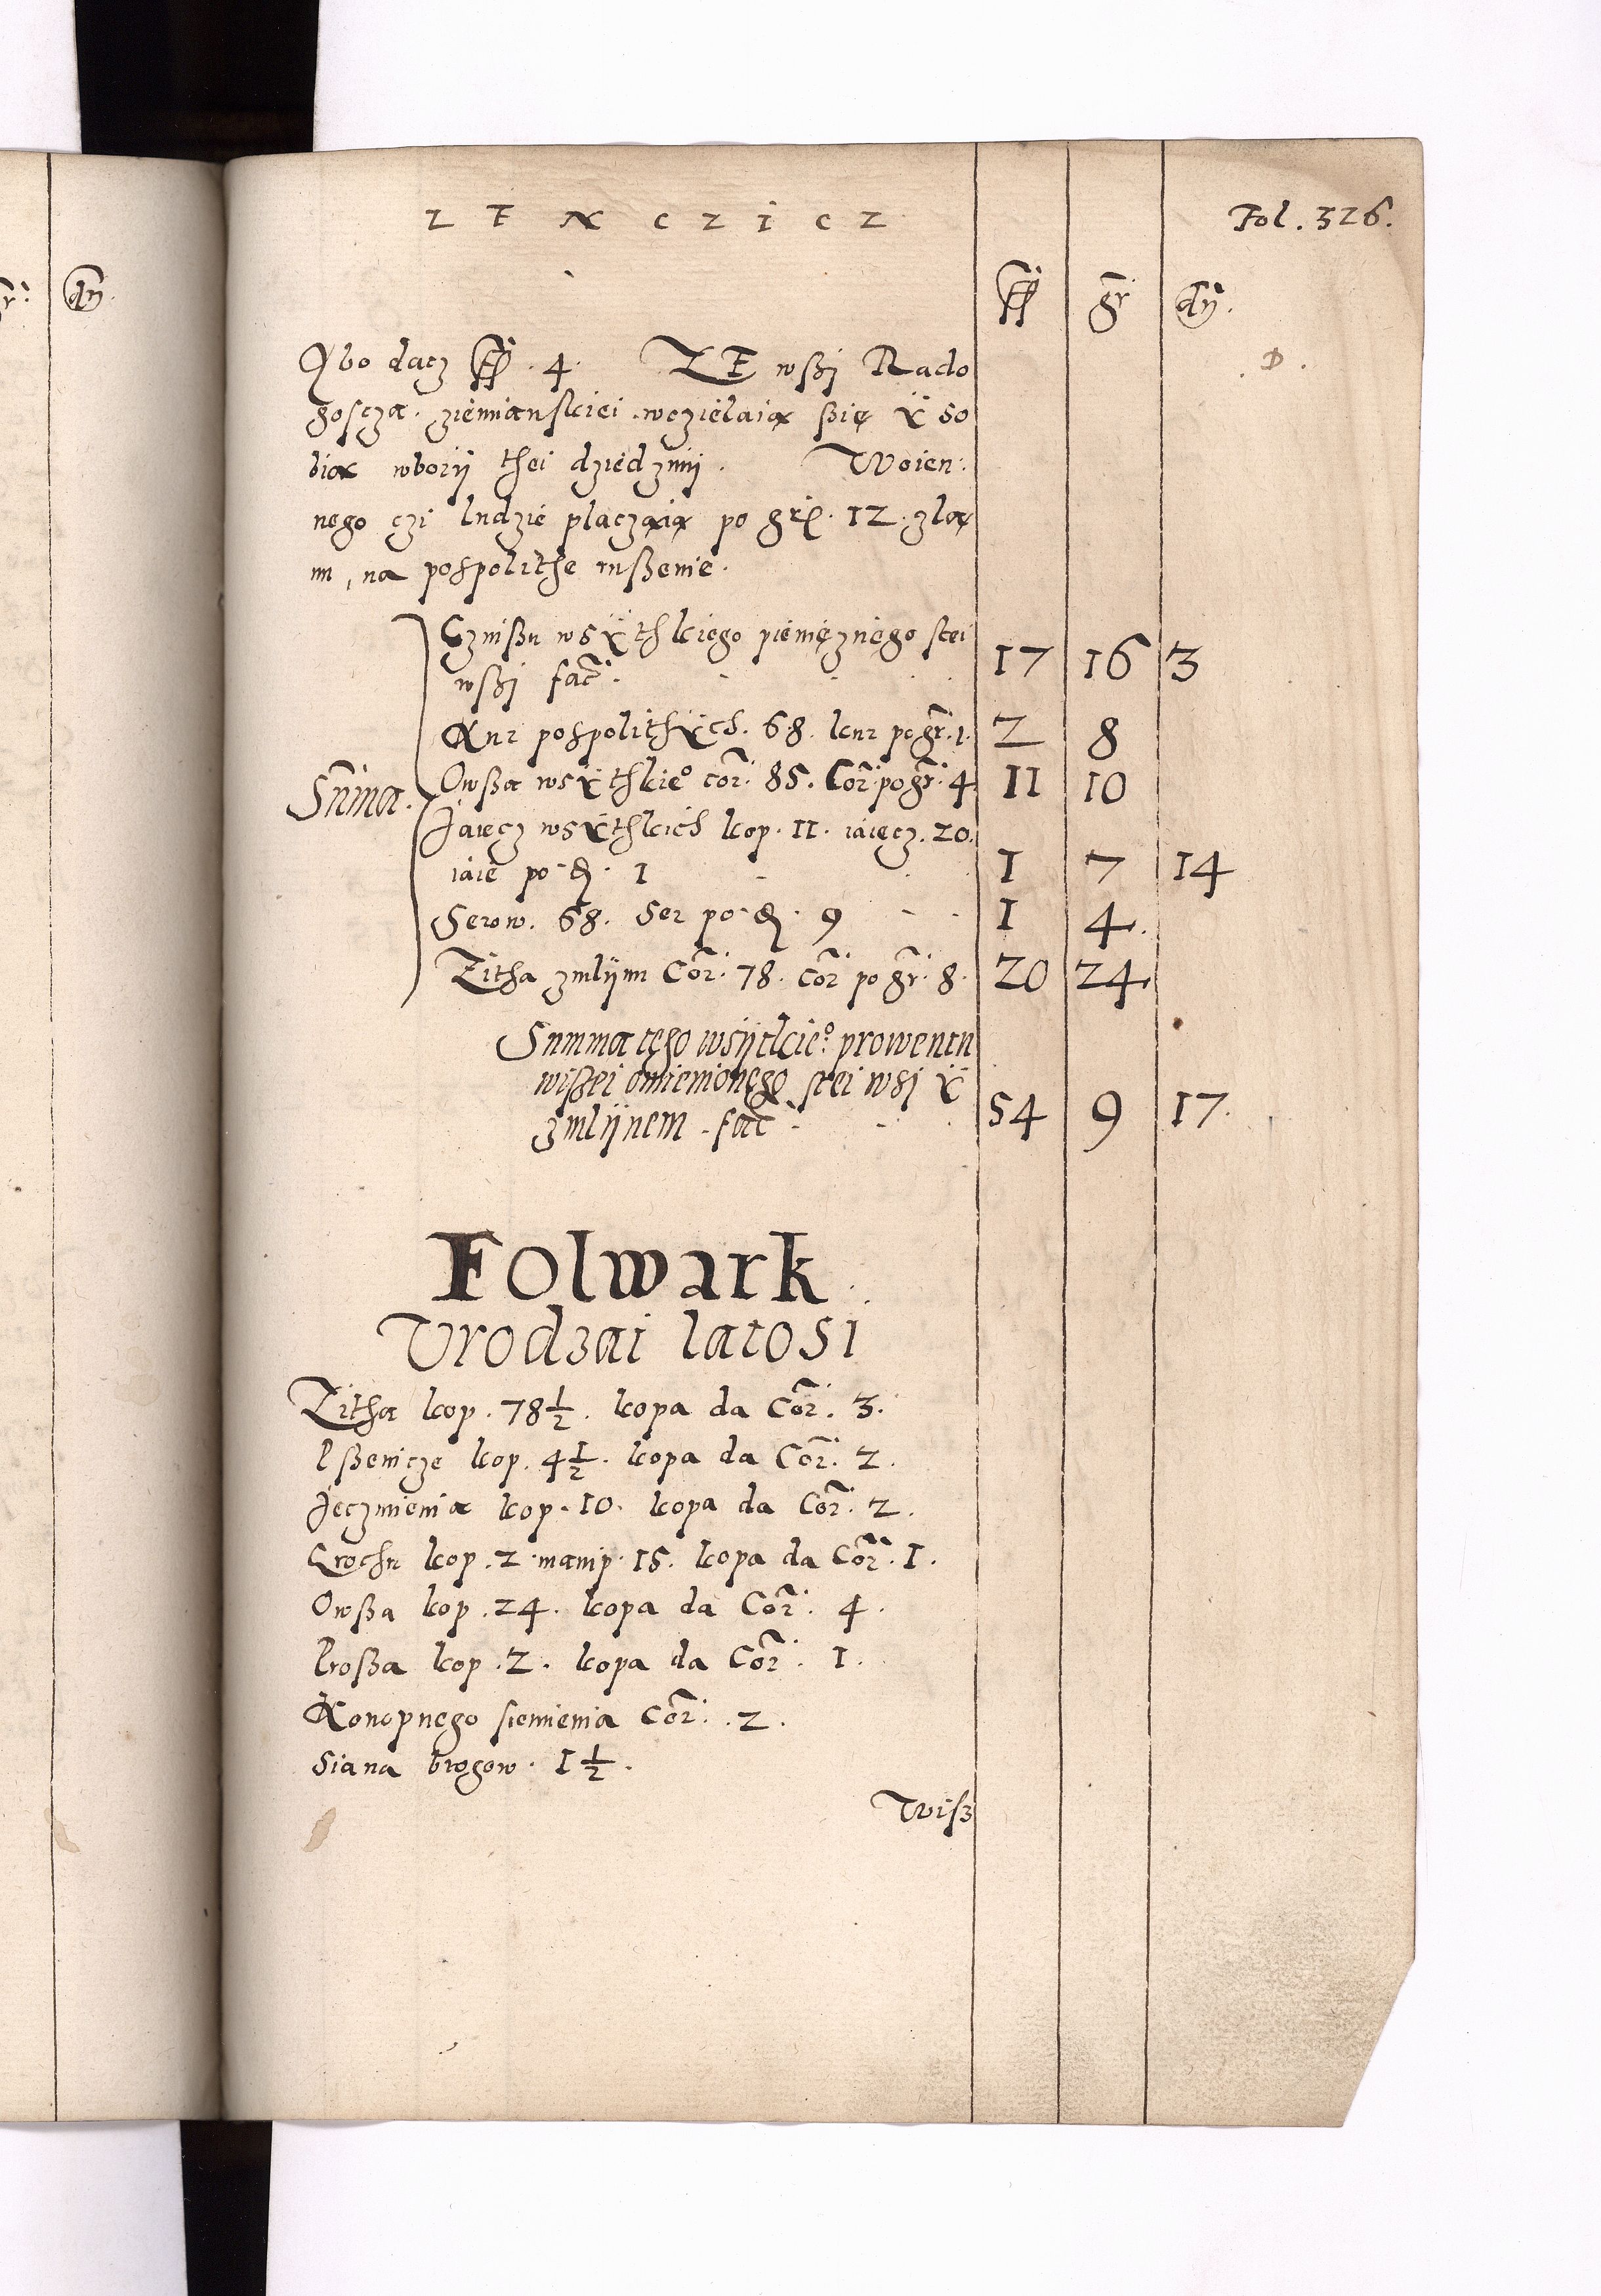 Z E N C Z I C Z
Fol. 326.
ff gr dn.
Abo dacz ff. 4. ZE wßj Rado
goscza. ziemianskiei wczielaią ßię ÿ so
bią wboiÿ thei dziedzinÿ. Woien:
nego czi ludzie placzaią po gr. 12. zla
m, na pospolithe rußenie.
Summa.
Czinßu wsÿthkiego pienięznego stei
wßj fac̄. 17 16 3
Kur pospolithÿch. 68. kur po gr. 1. 2 8
Owßa wsÿthkie° cor. 85. Cor. po gr. 4 11 10
Jaiecz wsÿthkich kop. 11. iaięcz. 20.
iaie po d. 1 1 7 14
Serow. 68. Ser po d. 9 1 4.
Zitha zmlÿnu Cor. 78. cor po gr. 8. 20 24
Summa tego wsÿtkie°. prowentu
wißei omienionego stei wsj ÿ
zmlÿnem fac̄ 54 9 17.
Folwark
Urodzai latosi
Zitha kop. 78 1/2. kopa da Cor. 3.
Pßenicze kop. 4 1/2. kopa da Cor. 2.
Jęczmienia kop. 10. kopa da Cor. 2.
Grochu kop. 2 manip. 15. kopa da Cor. 1.
Owßa kop. 24. kopa da Cor. 4.
Proßa kop. 2. kopa da Cor. 1.
Konopnego siemienia Cor. 2.
Siana brogow. 1 1/2.
Wisz
gr. dn.